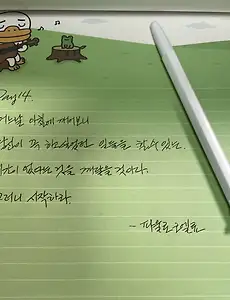 Day 14.
어느날 아침에 깨어보니
당신이 꼭 하고싶었던 일들을 할 수 있는
시간이 없다는 것을 깨달을 것이다.
그러니 시작하라.
- 파울로 코엘료